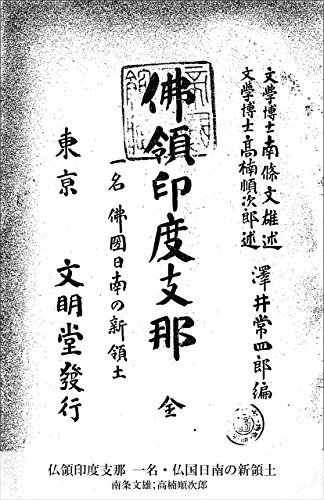 文學博士 南條文雄述
文學博士 高楠順次郎述
澤井常四郎編
佛領印度支那 全
一名 佛國日南の新領土
東京 文明堂發行
仏領印度支那 一名・仏国日南の新領土
南条文雄;高楠順次郎